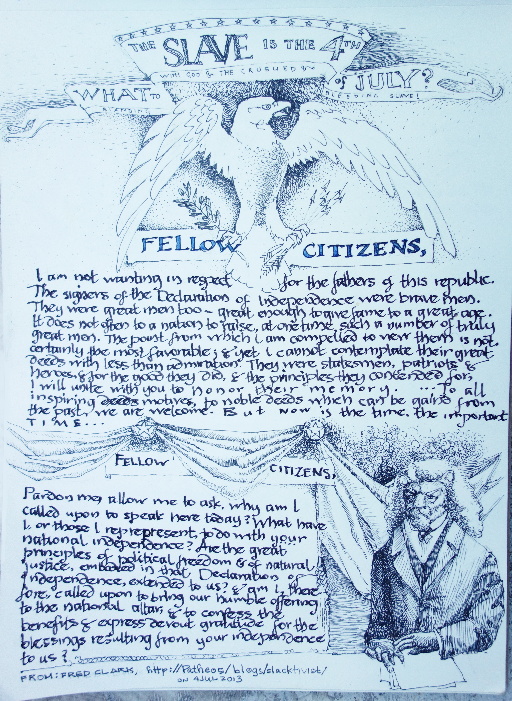 THE SLAVE IS THE 4TH
WITH GOD & THE CRUSHED &
WHAT TO
OF JULY?
BLEEDING SLAVE!
FELLOW CITIZENS,
I am not wanting in respect for the fathers of this republic.
The signers of the Declaration of Independence were brave men.
They were great men too – great enough to give fame to a great age.
It does not often to a nation to raise, at one time, such a number of truly
great men. The point from which I am compelled to view them is not,
certainly the most favorable; & yet I cannot contemplate their great
deeds with less than admiration. They were statesmen, patriots &
heroes, & for the good they did, & the principles they contended for,
I will unite with you to honor their memory. ... To all
inspiring deeds motives, to noble deeds which can be gained from
the past, we are welcome. But now is the time, the important
TIME...
FELLOW CITIZENS,
Pardon me, allow me to ask, why am I
called upon to speak here today? What have
I, or those I repres­ent, to do with your
national independence? Are the great
principles of political freedom & of natural
justice, embodied in that, Declaration of
Independence, extended to us? & am I, there
fore, called upon to bring our humble offering
to the national altar, & to confess the
benefits & express devout gratitude for the
blessings resulting from your independence
to us?
FROM: FRED CLARK, http://Patheos/blogs/slacktivist/
ON 4 JUL 2013